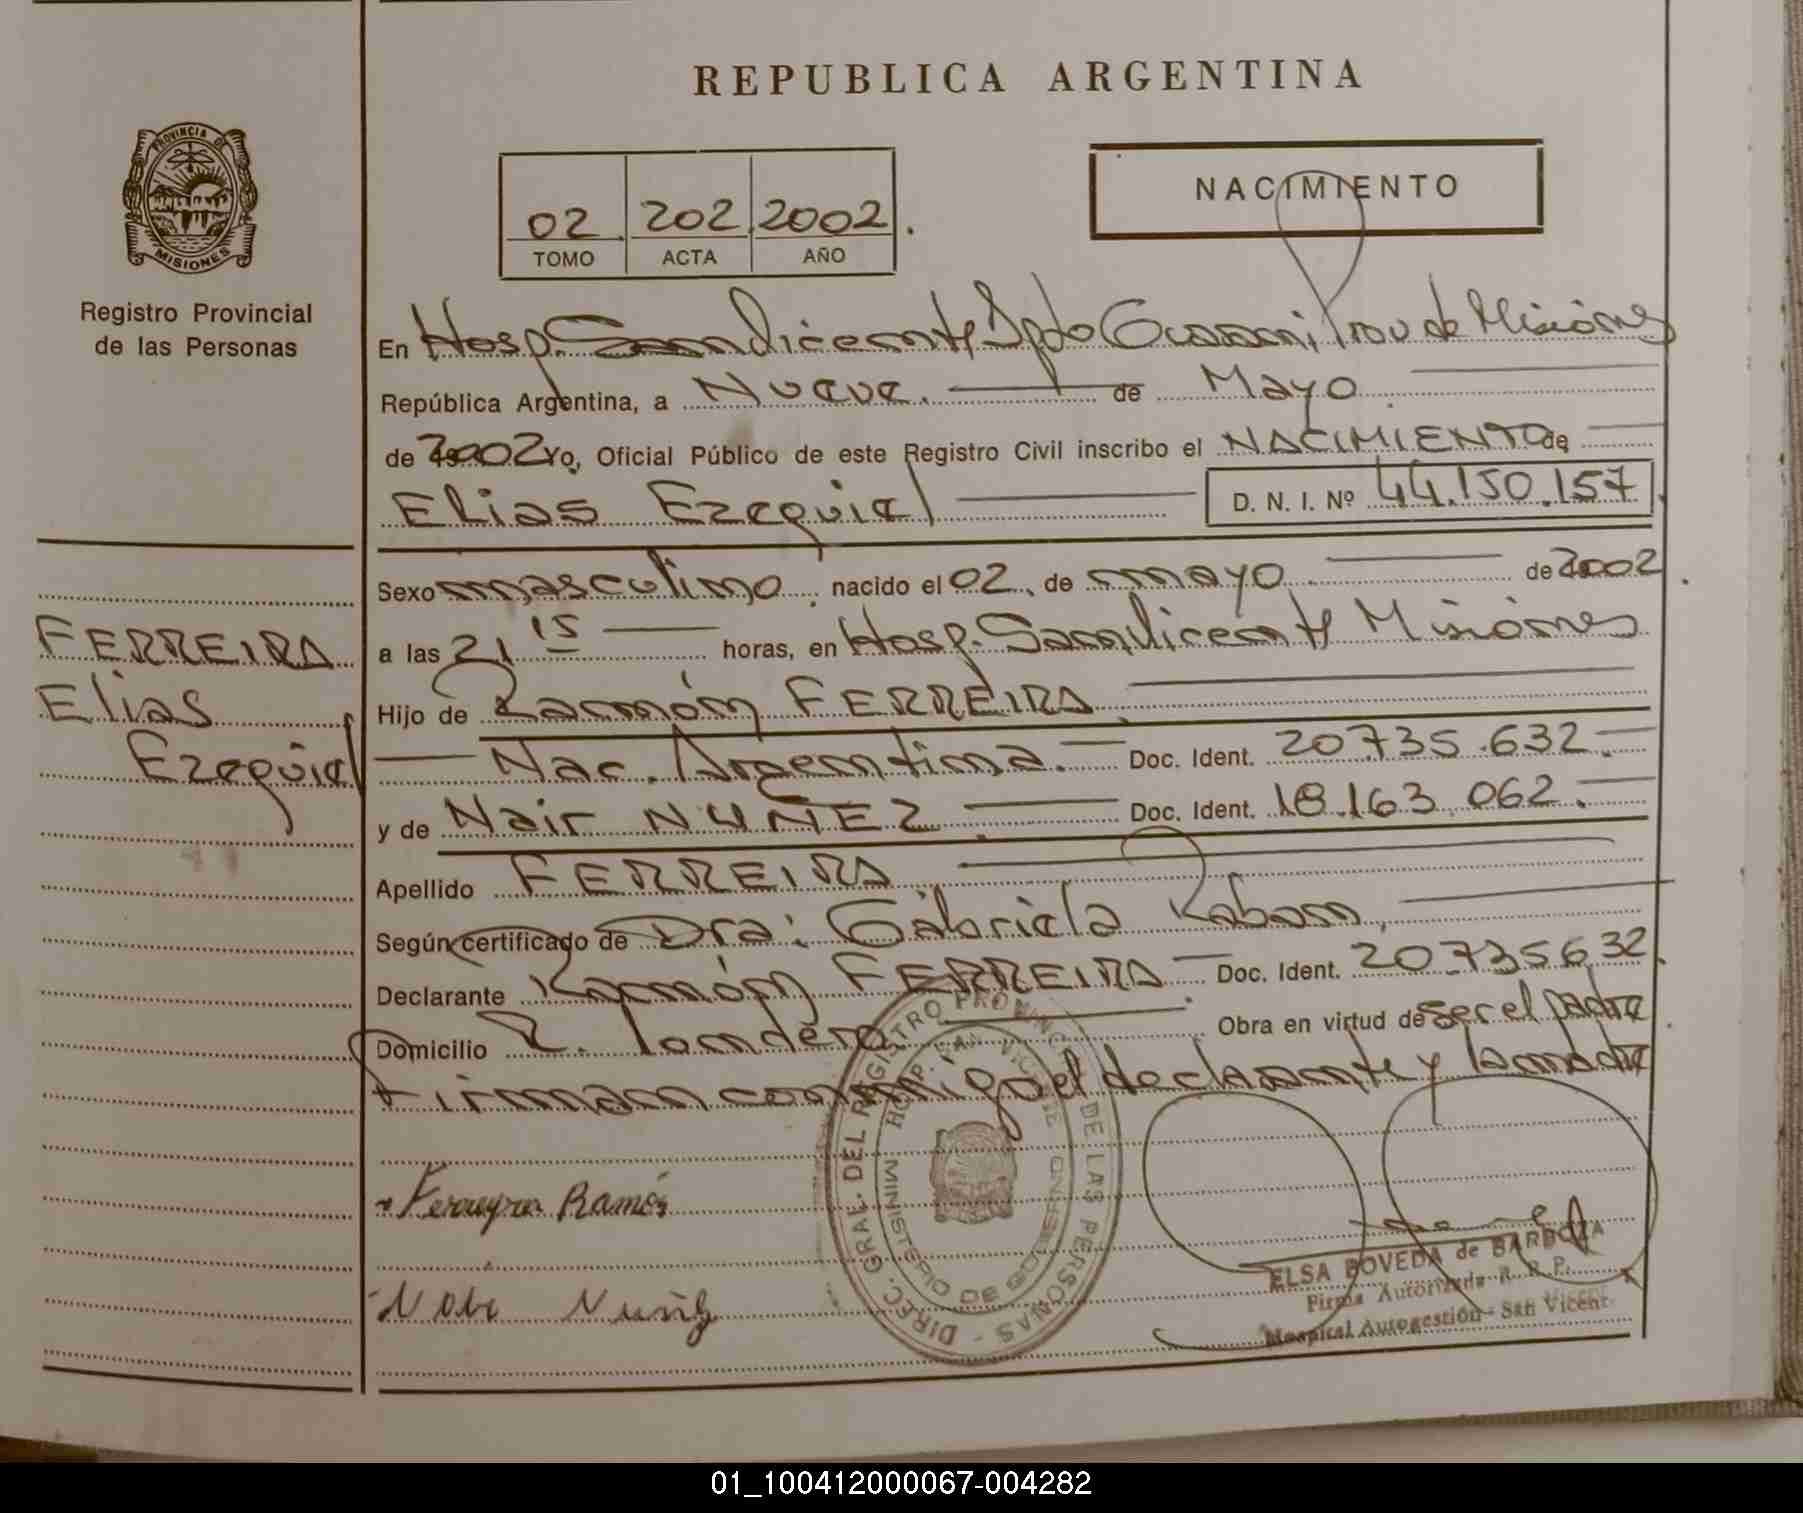 REPUBLICA ARGENTINA
PROVINCIA DE
MISIONES
Registro Provincial
de las Personas
02 202 2002.
TOMO ACTA AÑO
NACIMIENTO
En Hosp. San Vicente Dpto Guarani Prov de Misiónes
República Argentina, a Nueve. de Mayo
de 2002 Yo, Oficial Público de este Registro Civil inscribo el NACIMIENTO de
Elias Ezequiel D. N. I. Nº 44.150.157
Sexo masculino, nacido el 02, de mayo de 2002.
a las 21 15 horas, en Hosp. San Vicente Misiónes
Hijo de Ramón FERREIRA
Nac. Argentina. Doc. Ident. 20.735.632.
y de Nair NUÑEZ. Doc. Ident. 18.163.062.
Apellido FERREIRA
Según certificado de Dra: Gabriela
Declarante Ramón FERREIRA Doc. Ident. 20.735632.
Domicilio Obra en virtud de ser el padre.
Firman conmigo el declarante y la madre
FERREIRA
Elias
Ezequiel
Ferreyra Ramón
DIREC. GRAL. DEL REGISTRO PROVINCIAL DE LAS PERSONAS
HOSP. SAN VICENTE
MINISTERIO DE GOBIERNO
ELSA BOVEDA de BARBOZA
Firma Autorizada R. R. P.
Hospital Autogestión - San Vicent
01_100412000067-004282